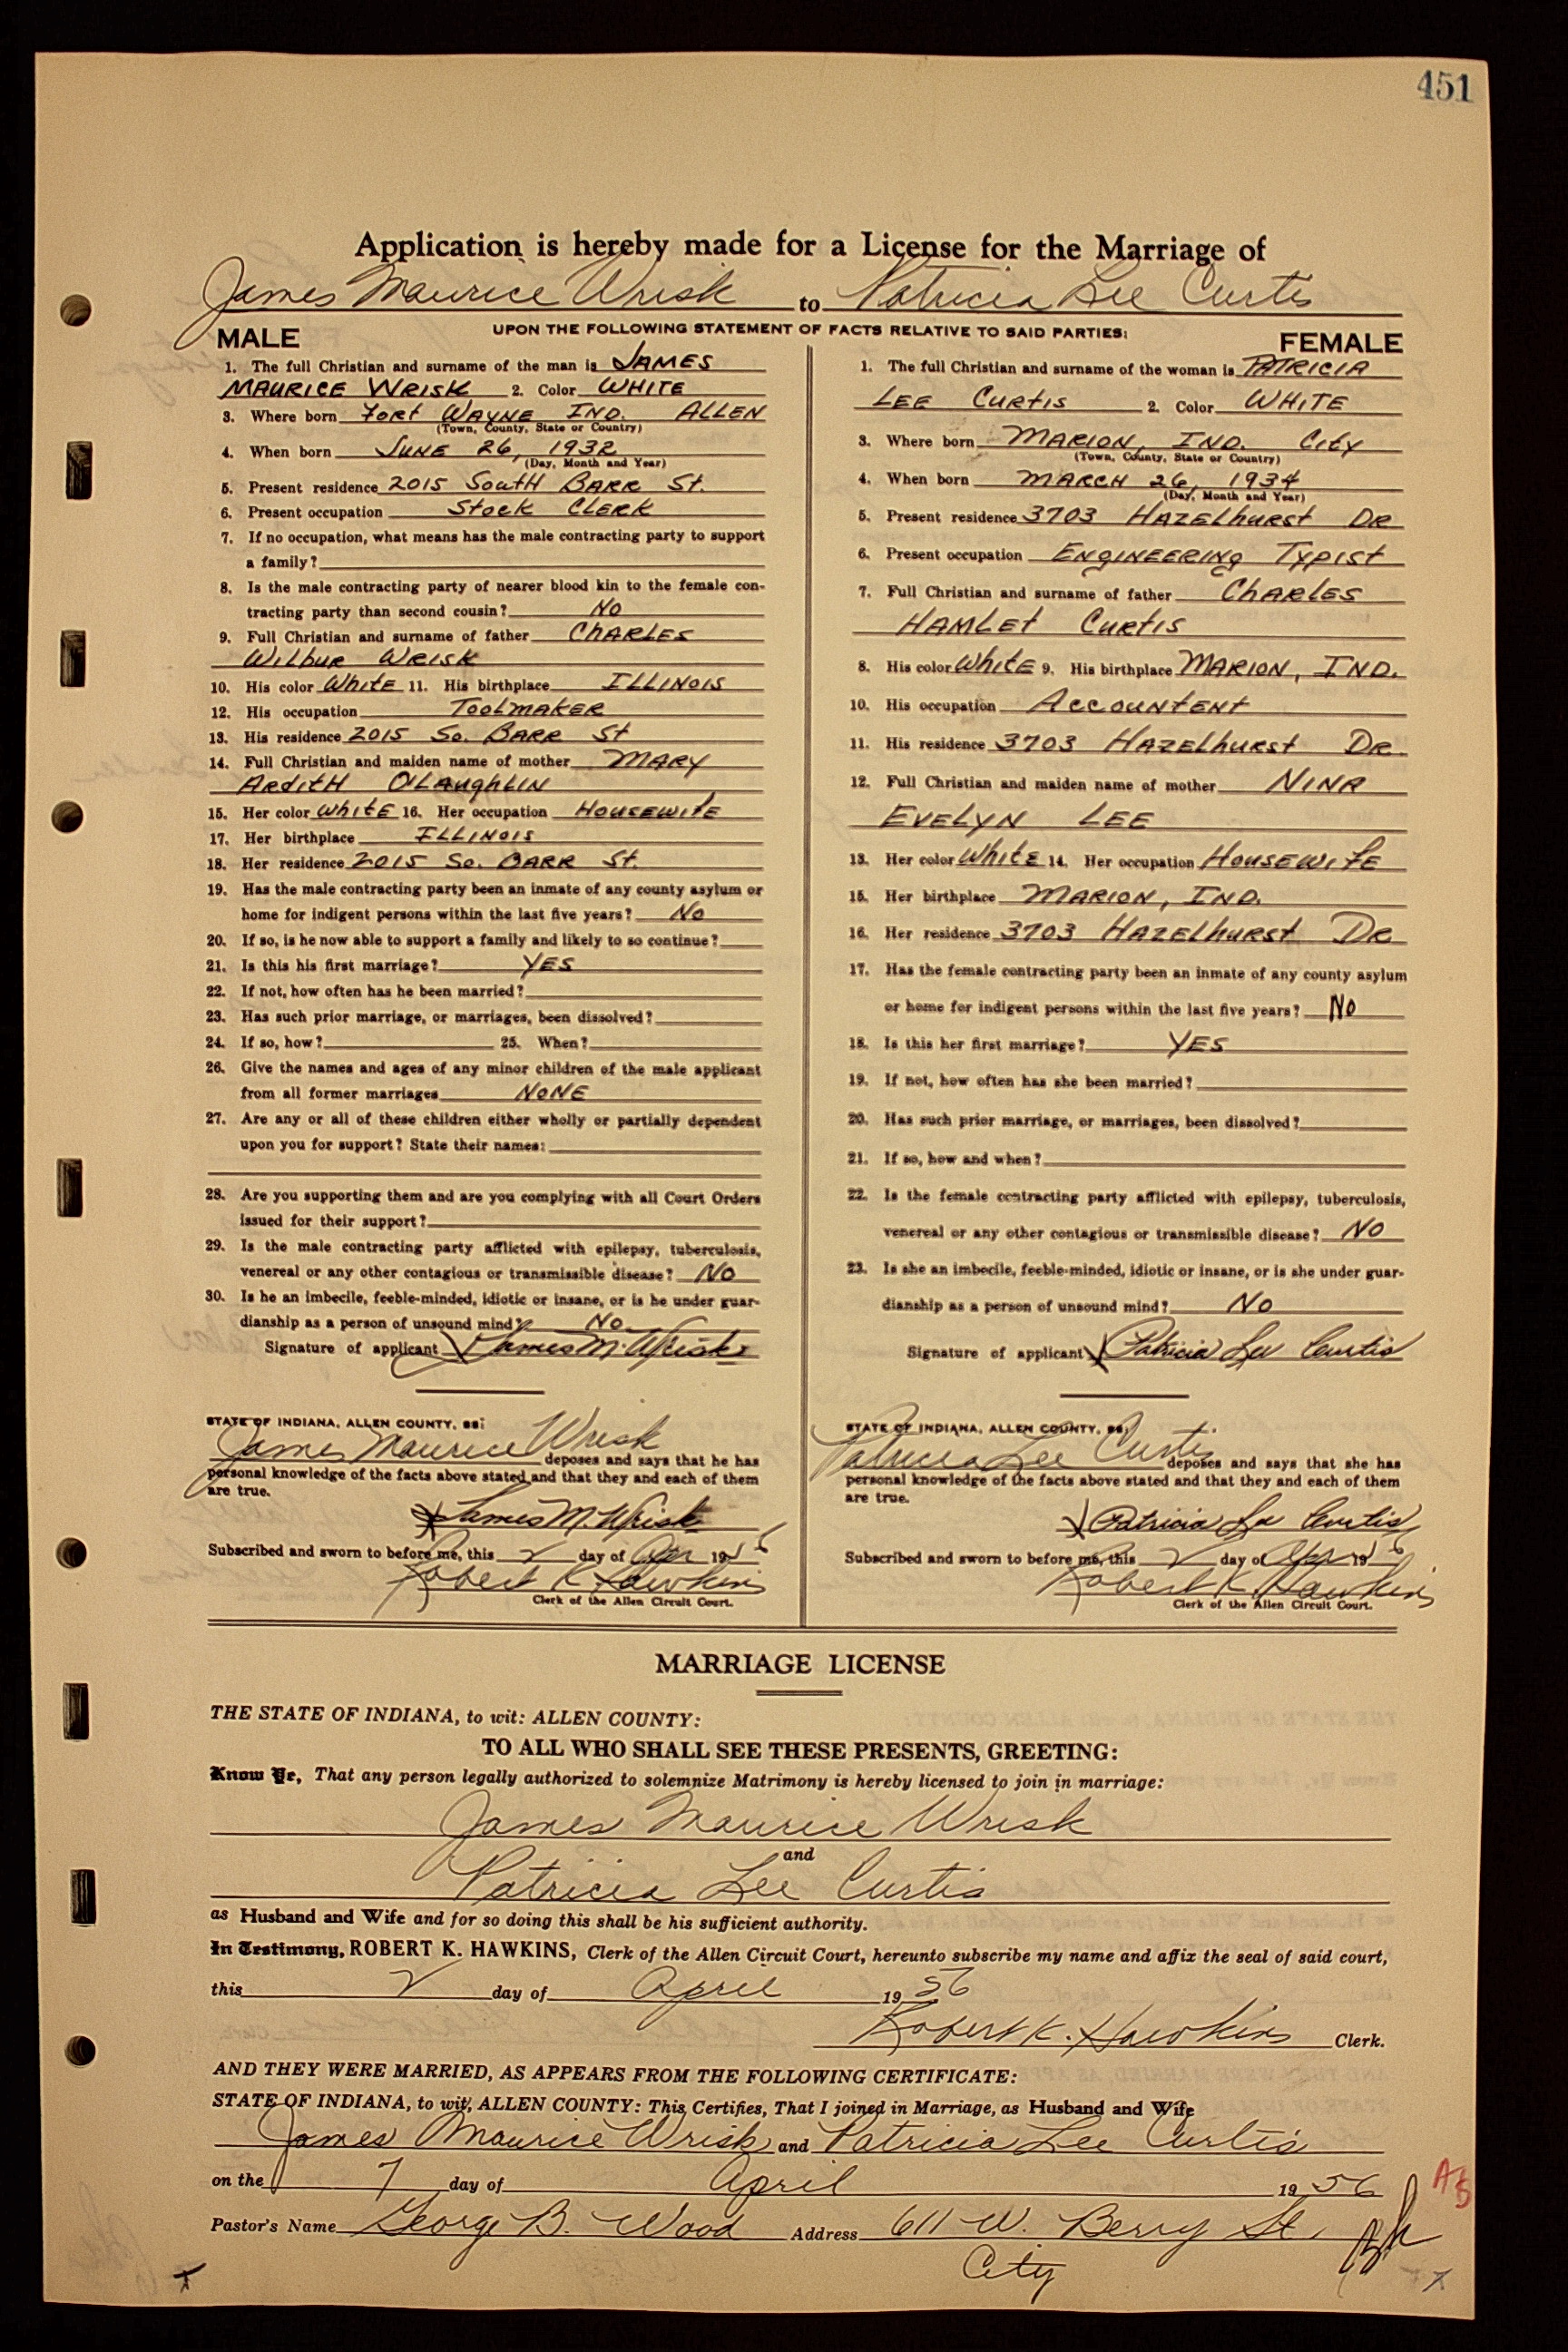 451
Application is hereby made for a License for the Marriage of
James Maurice Wrisk to Patricia Lee Curtis
UPON THE FOLLOWING STATEMENT OF FACTS RELATIVE TO SAID PARTIES:
MALE
1. The full Christian and surname of the man is JAMES
MAURICE WRISK 2. Color WHITE
3. Where born Fort WAYNE IND. ALLEN
(Town, County, State or Country)
4. When born JUNE 26, 1932
(Day, Month and Year)
5. Present residence 2015 South BARR St.
6. Present occupation Stock CLERK
7. If no occupation, what means has the male contracting party to support
a family?
8. Is the male contracting party of nearer blood kin to the female con-
tracting party than second cousin? NO
9. Full Christian and surname of father CHARLES
WILBUR WRISK
10. His color WhitE 11. His birthplace ILLINOIS
12. His occupation TOOLMAKER
13. His residence 2015 So. BARR St
14. Full Christian and maiden name of mother MARY
ArditH OLAughLIN
15. Her color WhitE 16. Her occupation HOUSEWIfE
17. Her birthplace ILLINOIS
18. Her residence 2015 So. BARR St.
19. Has the male contracting party been an inmate of any county asylum or
home for indigent persons within the last five years? No
20. If so, is he now able to support a family and likely to so continue?
21. Is this his first marriage? YES
22. If not, how often has he been married?
23. Has such prior marriage, or marriages, been dissolved?
24. If so, how? 25. When?
26. Give the names and ages of any minor children of the male applicant
from all former marriages NONE
27. Are any or all of these children either wholly or partially dependent
upon you for support? State their names:
28. Are you supporting them and are you complying with all Court Orders
issued for their support?
29. Is the male contracting party afflicted with epilepsy, tuberculosis,
venereal or any other contagious or transmissible disease? NO
30. Is he an imbecile, feeble-minded, idiotic or insane, or is he under guar-
dianship as a person of unsound mind? NO.
Signature of applicant James M. Wrisk
STATE OF INDIANA, ALLEN COUNTY, ss:
James Maurice Wrisk deposes and says that he has
personal knowledge of the facts above stated and that they and each of them
are true.
James M. Wrisk
Subscribed and sworn to before me, this 2 day of Apr 1956
Robert K. Hawkins
Clerk of the Allen Circuit Court.
FEMALE
1. The full Christian and surname of the woman is PATRICIA
LEE CURTIS 2. Color WHITE
3. Where born MARION, IND. City
(Town, County, State or Country)
4. When born MARCH 26, 1934
(Day, Month and Year)
5. Present residence 3703 HAZELhurst DR
6. Present occupation ENgINEERINg TYPIST
7. Full Christian and surname of father ChARLES
HAMLEt CURTIS
8. His color WhitE 9. His birthplace MARION, IND.
10. His occupation ACCOUNTENT
11. His residence 3703 HAZELhurst DR.
12. Full Christian and maiden name of mother NINA
EVELYN LEE
13. Her color WhitE 14. Her occupation HOUSEWIfE
15. Her birthplace MARION, IND.
16. Her residence 3703 HAZELhurst DR
17. Has the female contracting party been an inmate of any county asylum
or home for indigent persons within the last five years? NO
18. Is this her first marriage? YES
19. If not, how often has she been married?
20. Has such prior marriage, or marriages, been dissolved?
21. If so, how and when?
22. Is the female contracting party afflicted with epilepsy, tuberculosis,
venereal or any other contagious or transmissible disease? NO
23. Is she an imbecile, feeble-minded, idiotic or insane, or is she under guar-
dianship as a person of unsound mind? NO
Signature of applicant Patricia Lee Curtis
STATE OF INDIANA, ALLEN COUNTY, ss:
Patricia Lee Curtis deposes and says that she has
personal knowledge of the facts above stated and that they and each of them
are true.
Patricia Lee Curtis
Subscribed and sworn to before me, this 2 day of Apr 1956
Robert K. Hawkins
Clerk of the Allen Circuit Court.
MARRIAGE LICENSE
THE STATE OF INDIANA, to wit: ALLEN COUNTY:
TO ALL WHO SHALL SEE THESE PRESENTS, GREETING:
Know Ye, That any person legally authorized to solemnize Matrimony is hereby licensed to join in marriage:
James Maurice Wrisk
and
Patricia Lee Curtis
as Husband and Wife and for so doing this shall be his sufficient authority.
In Testimony, ROBERT K. HAWKINS, Clerk of the Allen Circuit Court, hereunto subscribe my name and affix the seal of said court,
this 2 day of April 1956
Robert K. Hawkins Clerk.
AND THEY WERE MARRIED, AS APPEARS FROM THE FOLLOWING CERTIFICATE:
STATE OF INDIANA, to wit, ALLEN COUNTY: This Certifies, That I joined in Marriage, as Husband and Wife
James Maurice Wrisk and Patricia Lee Curtis
on the 7 day of April 1956
Pastor's Name George B. Wood Address 611 W. Berry St.
City